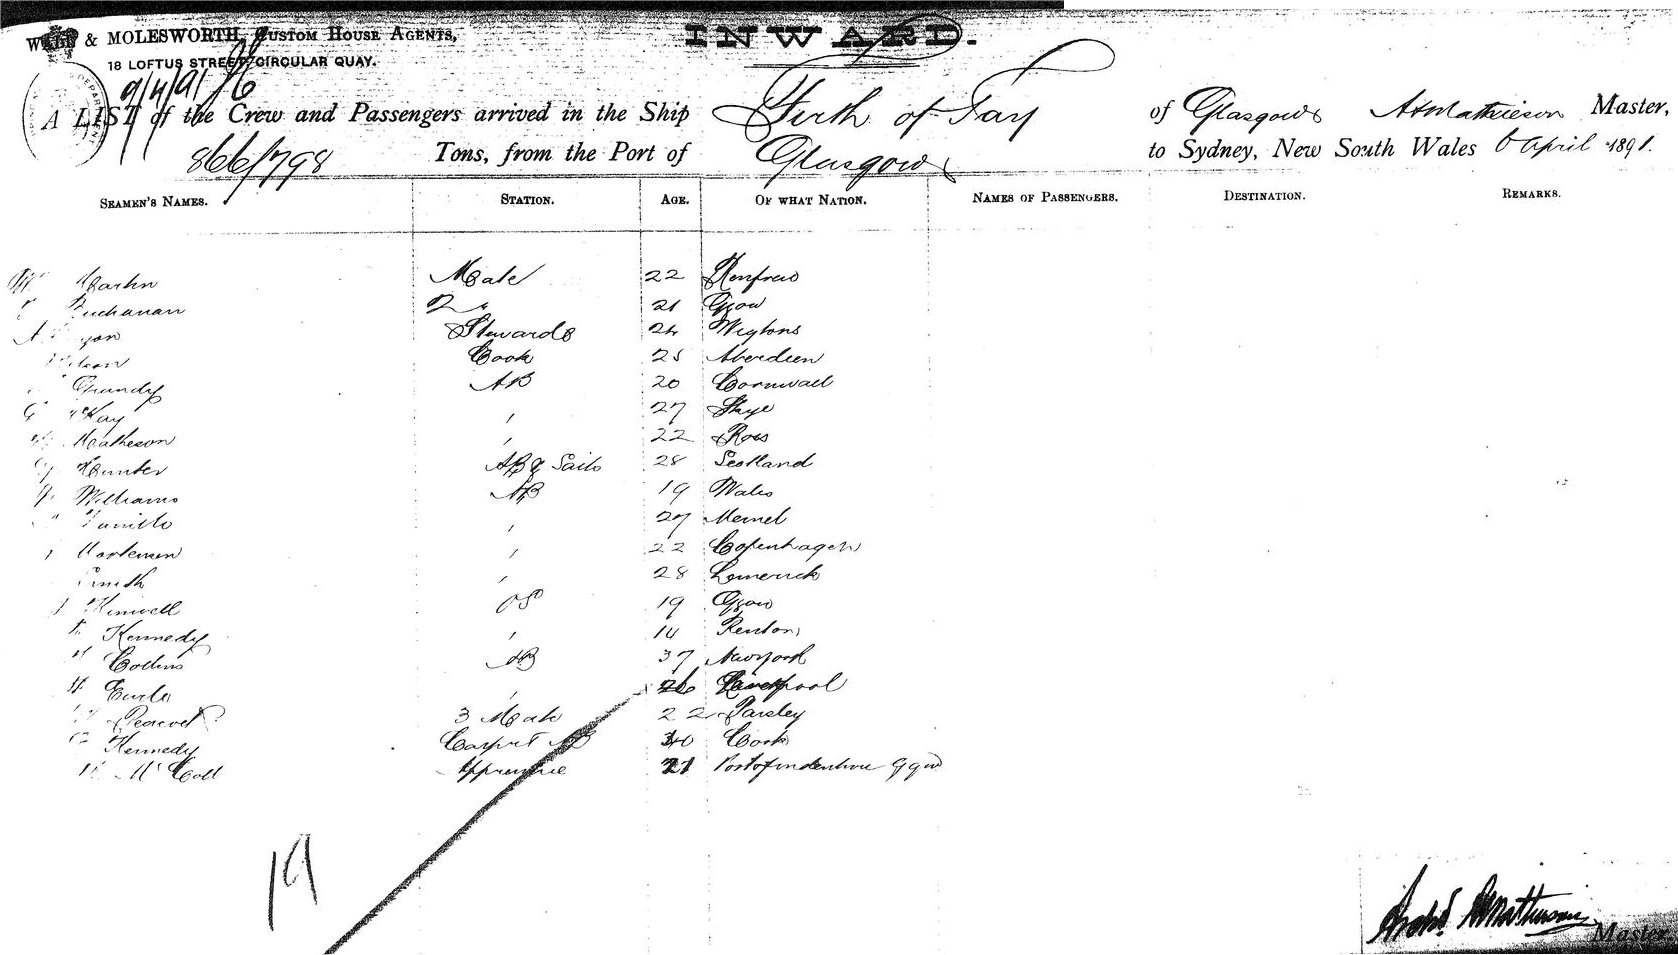 INWARD.
& MOLESWORTH, CUSTOM HOUSE AGENTS,
18 LOFTUS STREET, CIRCULAR QUAY.
9/4/91
A LIST of the Crew and Passengers arrived in the Ship Firth of Tay of Glasgow Mathieson Master,
866/798 Tons, from the Port of Glasgow to Sydney, New South Wales 6 April 1891.
SEAMEN'S NAMES. STATION. AGE. OF WHAT NATION. NAMES OF PASSENGERS. DESTINATION. REMARKS.
Martin Mate 22 Renfrew
Buchanan 2 " 21 Ggow
Steward 24
Cook 25 Aberdeen
Grundy AB 20 Cornwall
McKay " 27 Skye
Matheson " 22 Ross
Hunter AB & Sails 28 Scotland
Williams AB 19 Wales
" 27 Memel
Mortensen " 22 Copenhagen
Smith " 28 Limerick
OS 19 Ggow
Kennedy " Renton
Collins AB 37 Newyork
" 26 Liverpool
3 Mate 22 Paisley
Kennedy AB Cork
McColl Apprentice 21 Ggow
19
Mathieson
Master